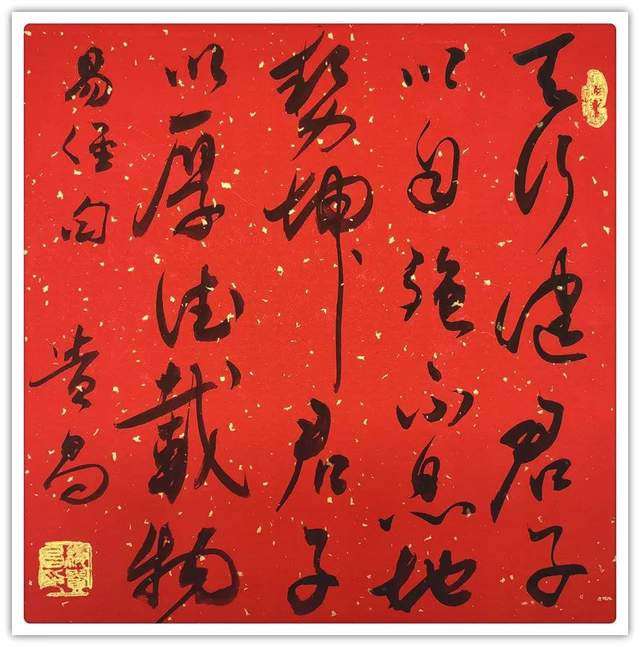 天行健君子
以自强不息地
势坤君子
以厚德载物
易经句
贵昌